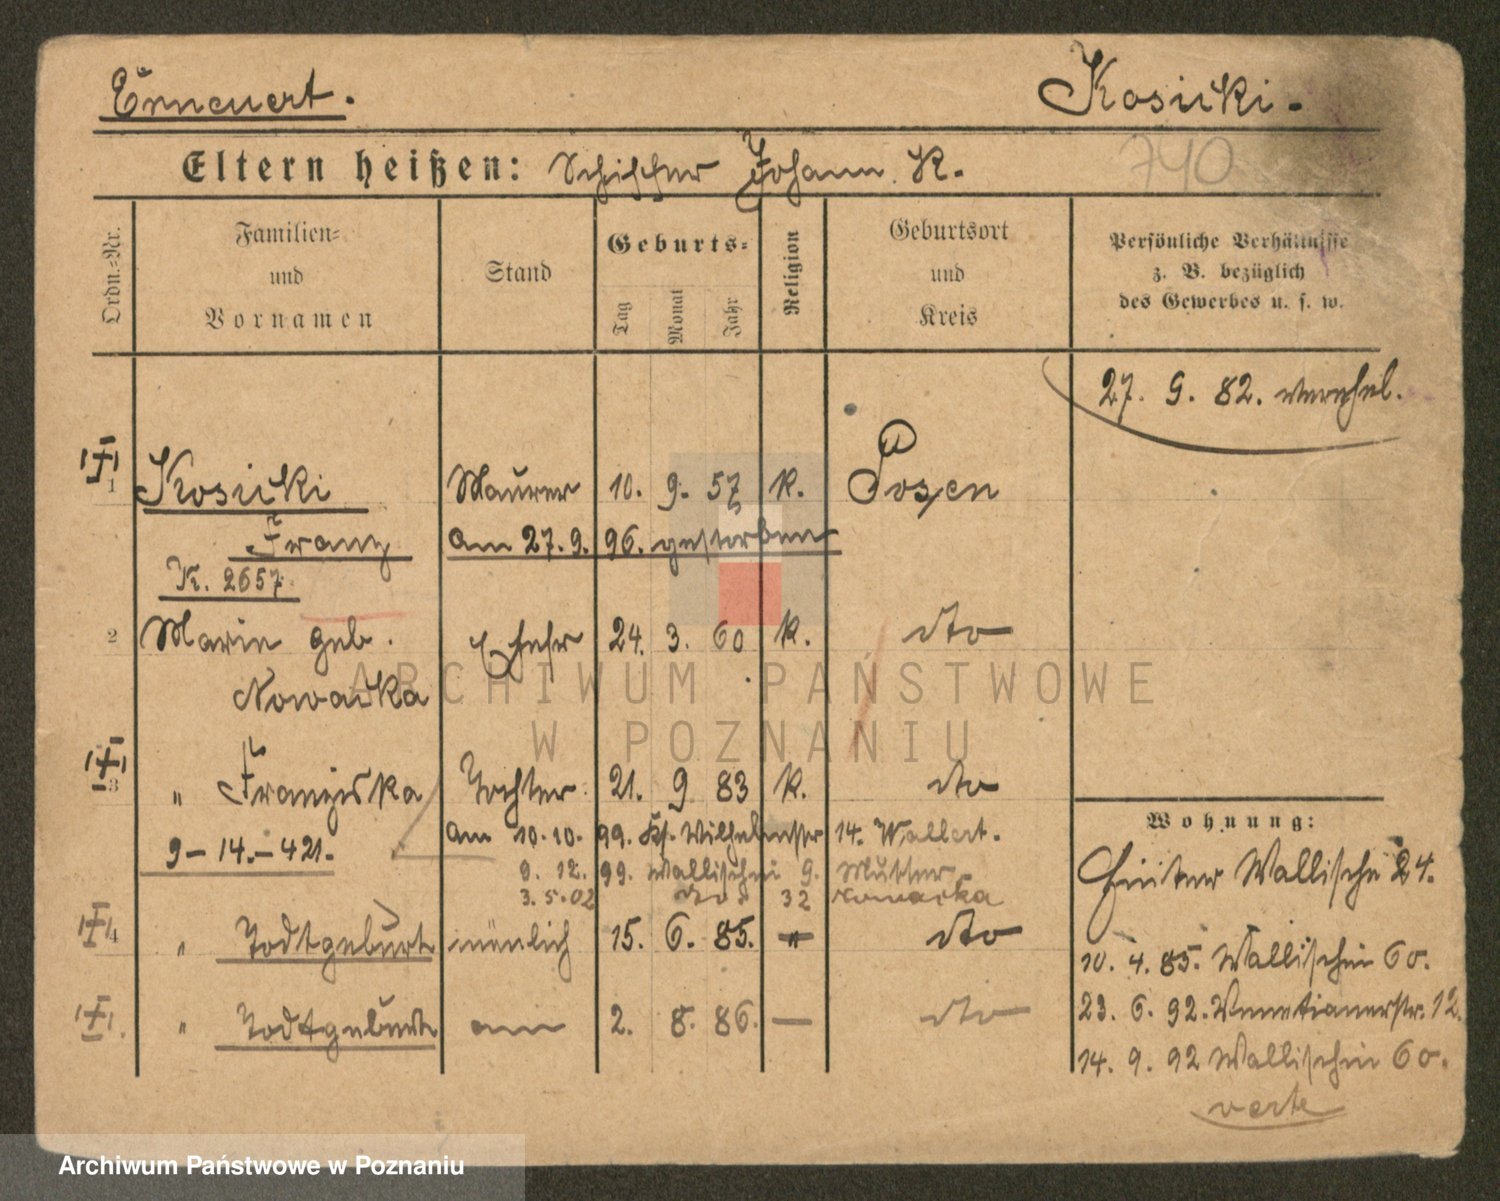 Erneuert.
Kosicki.
Eltern heißen: Schiffer Johann K.
740
Ordn.=Nr.
Familien=
und
Vornamen
Stand
Geburts=
Tag
Monat
Jahr
Religion
Geburtsort
und
Kreis
Persönliche Verhältnisse
z. B. bezüglich
des Gewerbes u. s. w.
27. 9. 82. verehel.
1 Kosicki Maurer 10. 9. 57 K. Posen
Franz am 27. 9. 96. gestorben
K. 2657.
2 Marie geb. Ehefr 24. 3. 60 K. dto
Nowacka
3 " Franziska Tochter 21. 9 83 K. dto
am 10. 10. 99. Wilhelmstr 14. Wallert.
9-14.-421.
9. 12. 99. Wallischei 9. Mutter
3. 5. 02 32 Nowacka
4 " Todtgeburt mänlich 15. 6. 85. " dto
" Todtgeburt ein 2. 8. 86. — dto
Wohnung:
Hinter Wallischei 24.
10. 4. 85. Wallischei 60.
23. 6. 92. Venetianerstr. 12.
14. 9. 92 Wallischei 60.
verte
ARCHIWUM PAŃSTWOWE
W POZNANIU
Archiwum Państwowe w Poznaniu